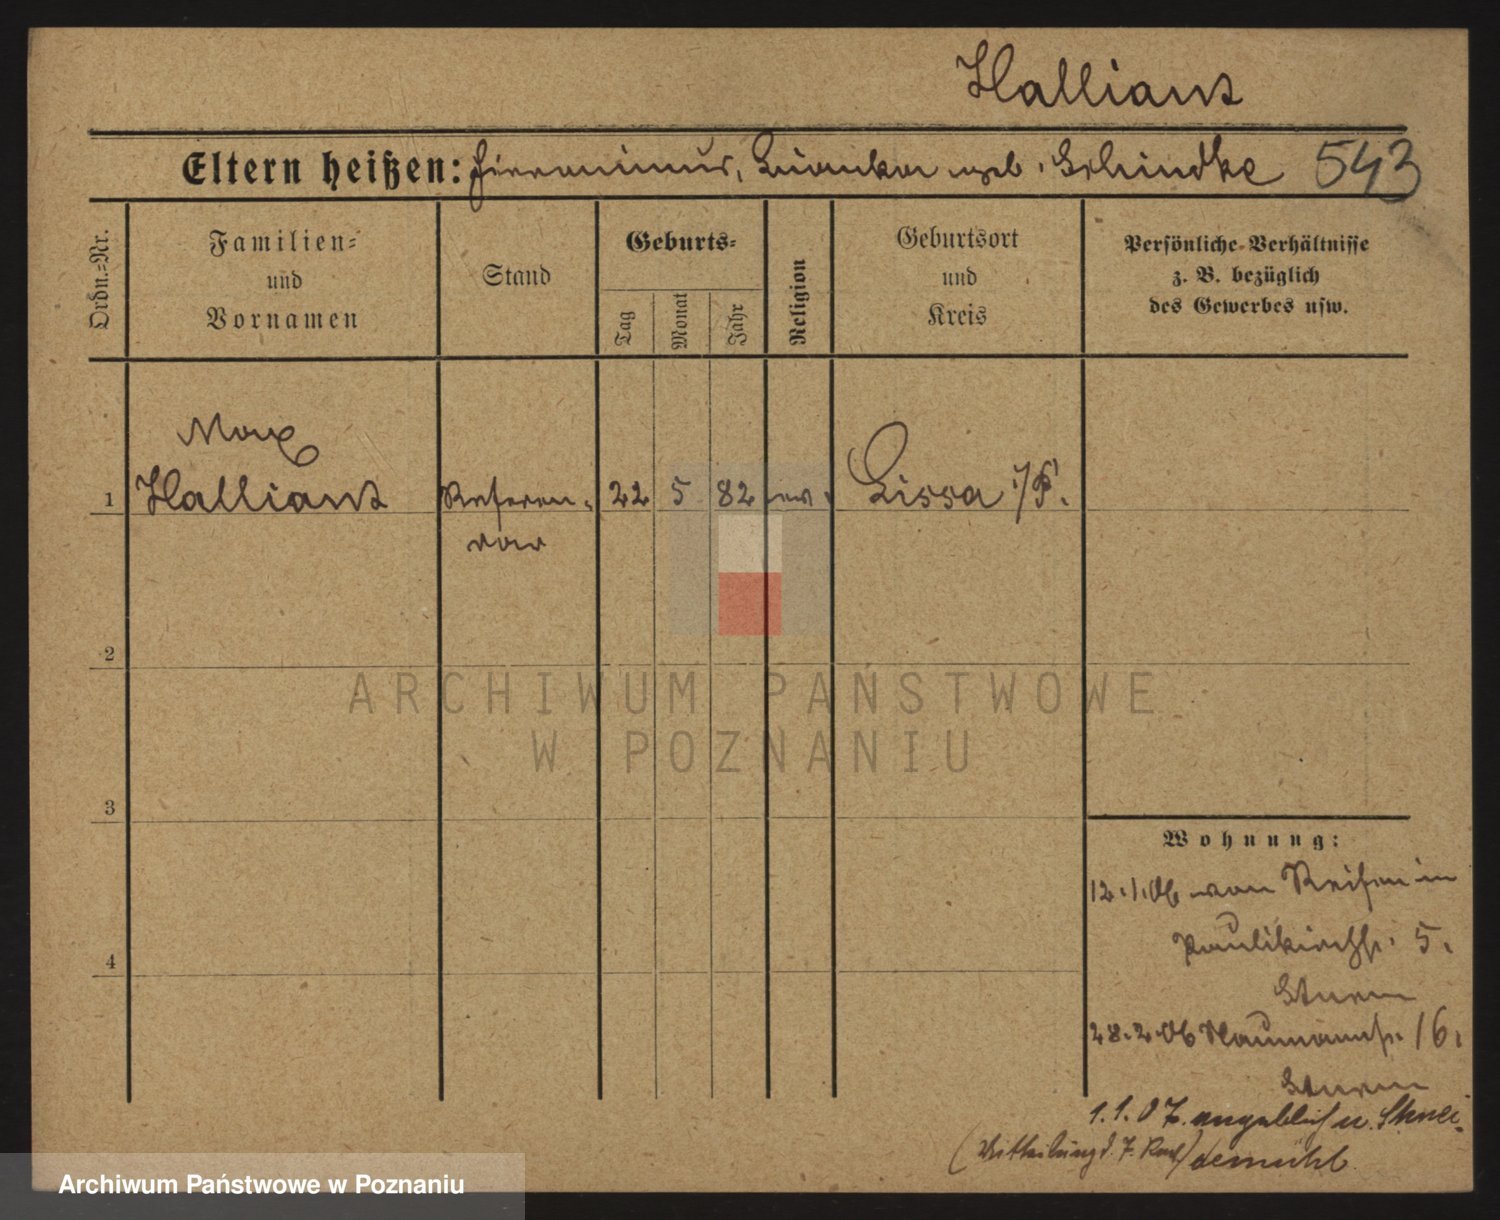 Halliant
Eltern heißen: Hieronimus, Bianka geb. Schindke 543
Ordn.=Nr.
Familien=
und
Vornamen
Stand
Geburts=
Tag
Monat
Jahr
Religion
Geburtsort
und
Kreis
Persönliche Verhältnisse
z. B. bezüglich
des Gewerbes usw.
Max
1 Halliant Referen- 22 5 82 Lissa i/P.
dar
2
ARCHIWUM PAŃSTWOWE
W POZNANIU
3
Wohnung:
12.1.06 von Reisen in
Paulikirchstr. 5.
4
Sturm
28.2.06 Naumannstr. 16.
Sturm
1.1.07. angeblich n. Schnei-
demühl
(Mittheilung d. 7. Rev.)
Archiwum Państwowe w Poznaniu